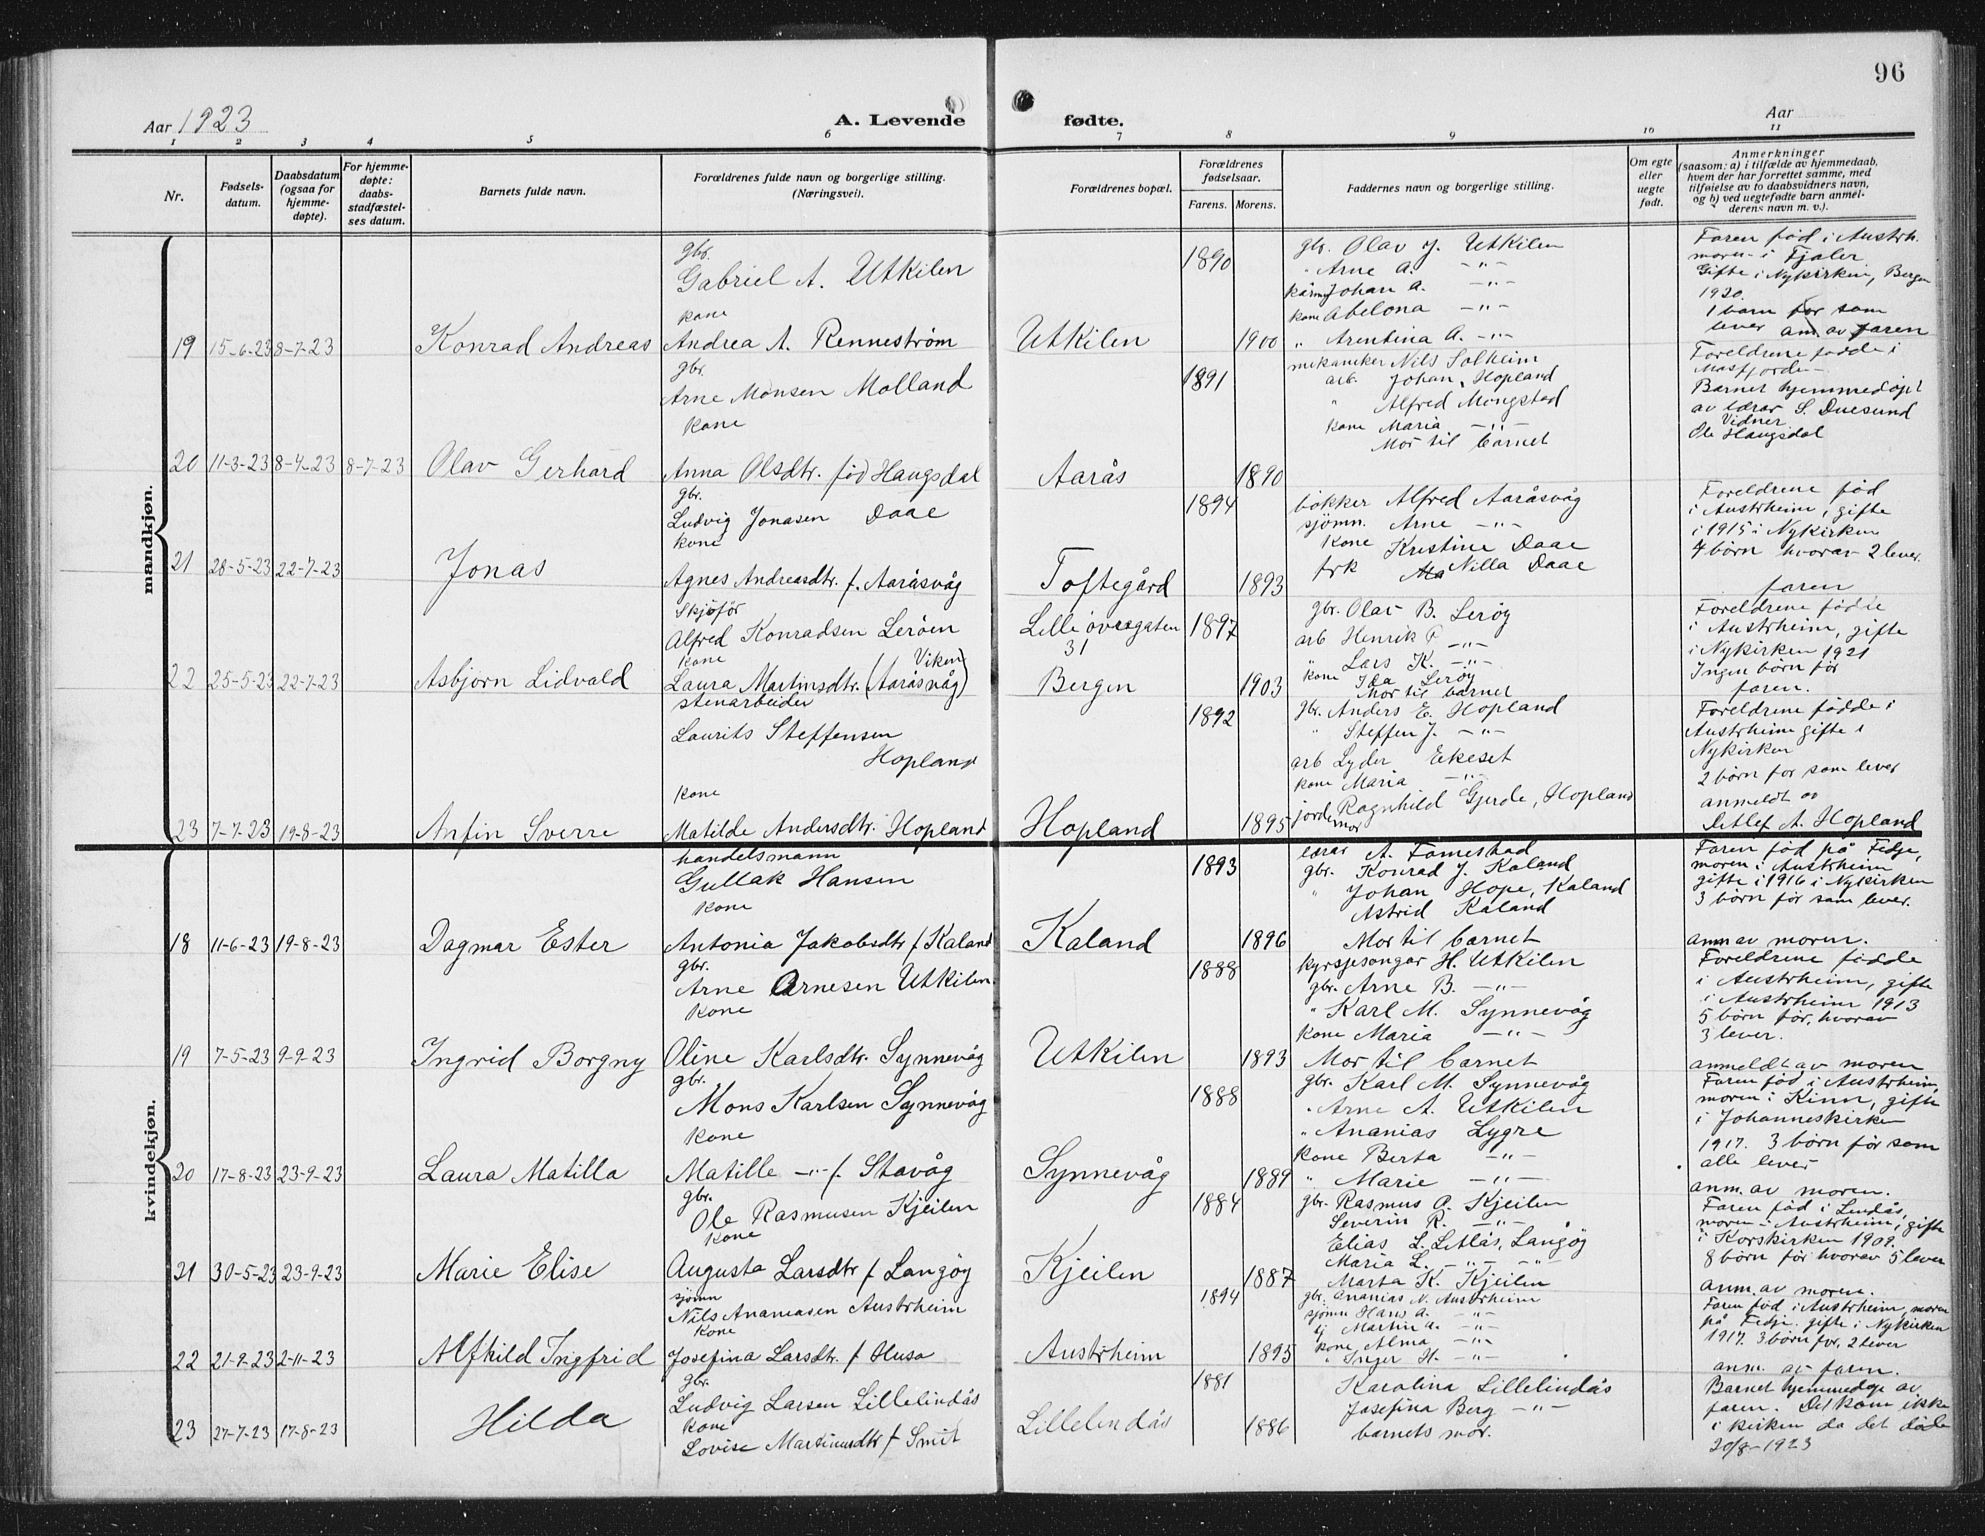 96
Aar 1923
A. Levende
fødte.
Aar
1 2 3 4 5 6 7 8 9 10 11
Nr.
Fødsels-
datum.
Daabsdatum
(ogsaa for
hjemme-
døpte).
For hjemme-
døpte:
daabs-
stadfæstel-
ses datum.
Barnets fulde navn.
Forældrenes fulde navn og borgerlige stilling.
(Næringsvei).
Forældrenes bopæl.
Forældrenes
fødselsaar.
Farens. Morens.
Faddernes navn og borgerlige stilling.
Om egte
eller
uegte
født.
Anmerkninger
(saasom: a) i tilfælde av hjemmedaab,
hvem der har forrettet samme, med
tilføielse av to daabsvidners navn,
og b) ved uegtefødte barn anmel-
derens navn m. v.).
mandkjøn.
19 15-6-23 8-7-23
Konrad Andreas
gbr.
Gabriel A. Utkilen
kone
Andrea A. Rennestrøm
Utkilen
1890
1900
gbr. Olav J. Utkilen
" Arne A. -"-
Johan A. -"-
kone Abelona -"-
" Arentina A. -"-
Faren fød i Austrh.
moren - i Fjaler
Gifte i Nykirken, Bergen
1920.
1 barn før som
lever anm av faren
20 11-3-23 8-4-23 8-7-23
Olav Gerhard
gbr.
Arne Monsen Molland
kone
Anna Olsdtr. fød Haugsdal
Aarås
1891
1890
mekaniker Nils Solheim
arb. Johan Hopland
" Alfred Mongstad
kone Maria -"-
Mor til barnet
Foreldrene fødde i
Masfjorden
Barnet hjemmedøpt
av lærar S. Duesund
Vidner
Ole Haugsdal
21 28-5-23 22-7-23
Jonas
gbr.
Ludvig Jonasen Daae
kone
Agnes Andreasdtr. f. Aaråsvåg
Toftegård
1894
1893
bøkker Alfred Aaråsvåg
sjømn. Arne -"-
kone Kristine Daae
frk Nilla Daae
Foreldrene fød
i Austrheim, gifte
i 1915 i Nykirken
4 børn hvorav 2 lever.
faren
22 25-5-23 22-7-23
Asbjørn Lidvald
Skjofør
Alfred Konradsen Lerøen
kone
Viken
Laura Martinsdtr. (Aaråsvåg)
Lille øvregaten
31
Bergen
1897
1903
gbr. Olav B. Lerøy
arb Henrik P. -"-
" Lars K. -"-
kone Ida Lerøy
Mor til barnet
Foreldrene fødde
i Austrheim, gifte
i Nykirken 1921
Ingen børn før
faren.
23 7-7-23 19-8-23
Anfin Sverre
stenarbeider
Laurits Steffensen
Hopland
kone
Matilde Andersdtr. Hopland
Hopland
1892
1895
gbr. Anders E. Hopland
" Steffen J. -"-
arb Lyder Ekeset
kone Maria -"-
jordmor Ragnhild Gjerde, Hopland
Foreldrene fødde i
Austrheim gifte i
Nykirken
2 børn før som lever
anmeldt av
Detlef A. Hopland
kvindekjøn.
18 11-6-23 19-8-23
Dagmar Ester
handelsmann
Gullak Hansen
kone
Antonia Jakobsdtr f Kaland
Kaland
1893
1896
lærar A. Famestad
gbr. Konrad J. Kaland
" Johan Hope, Kaland
Astrid Kaland
Mor til barnet
Faren fød på Fedje,
moren i Austrheim
gifte i 1916 i Nykirken
3 børn før som lever.
anm av moren.
19 7-5-23 9-9-23
Ingrid Borgny
gbr.
Arne Arnesen Utkilen.
kone
Oline Karlsdtr. Synnevåg
Utkilen
1888
1893
kyrsjesongar H. Utkilen
gbr. Arne B. -"-
" Karl M. Synnevåg
kone Maria -"-
Mor til barnet
Foreldrene fødde
i Austrheim, gifte
i Austrheim 1913
5 børn før, hvorav
3 lever.
anmeldt av moren
20 17-8-23 23-9-23
Laura Matilla
gbr.
Mons Karlsen Synnevåg
kone
Matille -"- f Stavåg
Synnevåg
1888
1889
gbr. Karl M. Synnevåg
" Arne A. Utkilen
" Ananias Lygre
kone Berta -"-
" Marie -"-
Faren fød i Austrheim,
moren i Kinn, gifte
i Johanneskirken
1917. 3 børn før som
alle lever
anm. av moren.
21 30-5-23 23-9-23
Marie Elise
gbr.
Ole Rasmusen Kjeilen
kone
Augusta Larsdtr f Langøy
Kjeilen
1884
1887
gbr. Rasmus O. Kjeilen
Severin R. -"-
Elias L. Litlås, Langøy
Maria L. -"- -"-
Marta K. Kjeilen
Faren fød i Lindås,
moren - Austrheim, gifte
i Korskirken 1909.
8 børn før hvorav 5 lever
anm. av moren.
22 21-9-23 2-11-23
Alfhild Ingfrid
sjømn
Nils Ananiasen Austrheim
kone
Josefina Larsdtr. f Husa
Austrheim
1894
1895
gbr. Ananias N. Austrheim
sjømn Hans A. -"-
Martin A. -"-
kone Alma -"-
" Inger H. -"-
Faren fød i Austrheim, moren
på Fedje. gifte i Nykirken
1917. 3 børn før, 2 lever
anm. av faren.
23 27-7-23 17-8-23
Hilda
gbr.
Ludvig Larsen Lillelindås
kone
Lovise Martinusdtr f Smit
Lillelindås
1881
1886
Karolina Lillelindås
Josefina Berg -"-
barnets mor.
Barnet hjemmedøpt av
faren. Det kom ikke
i kirken da det døde
20/8-1923